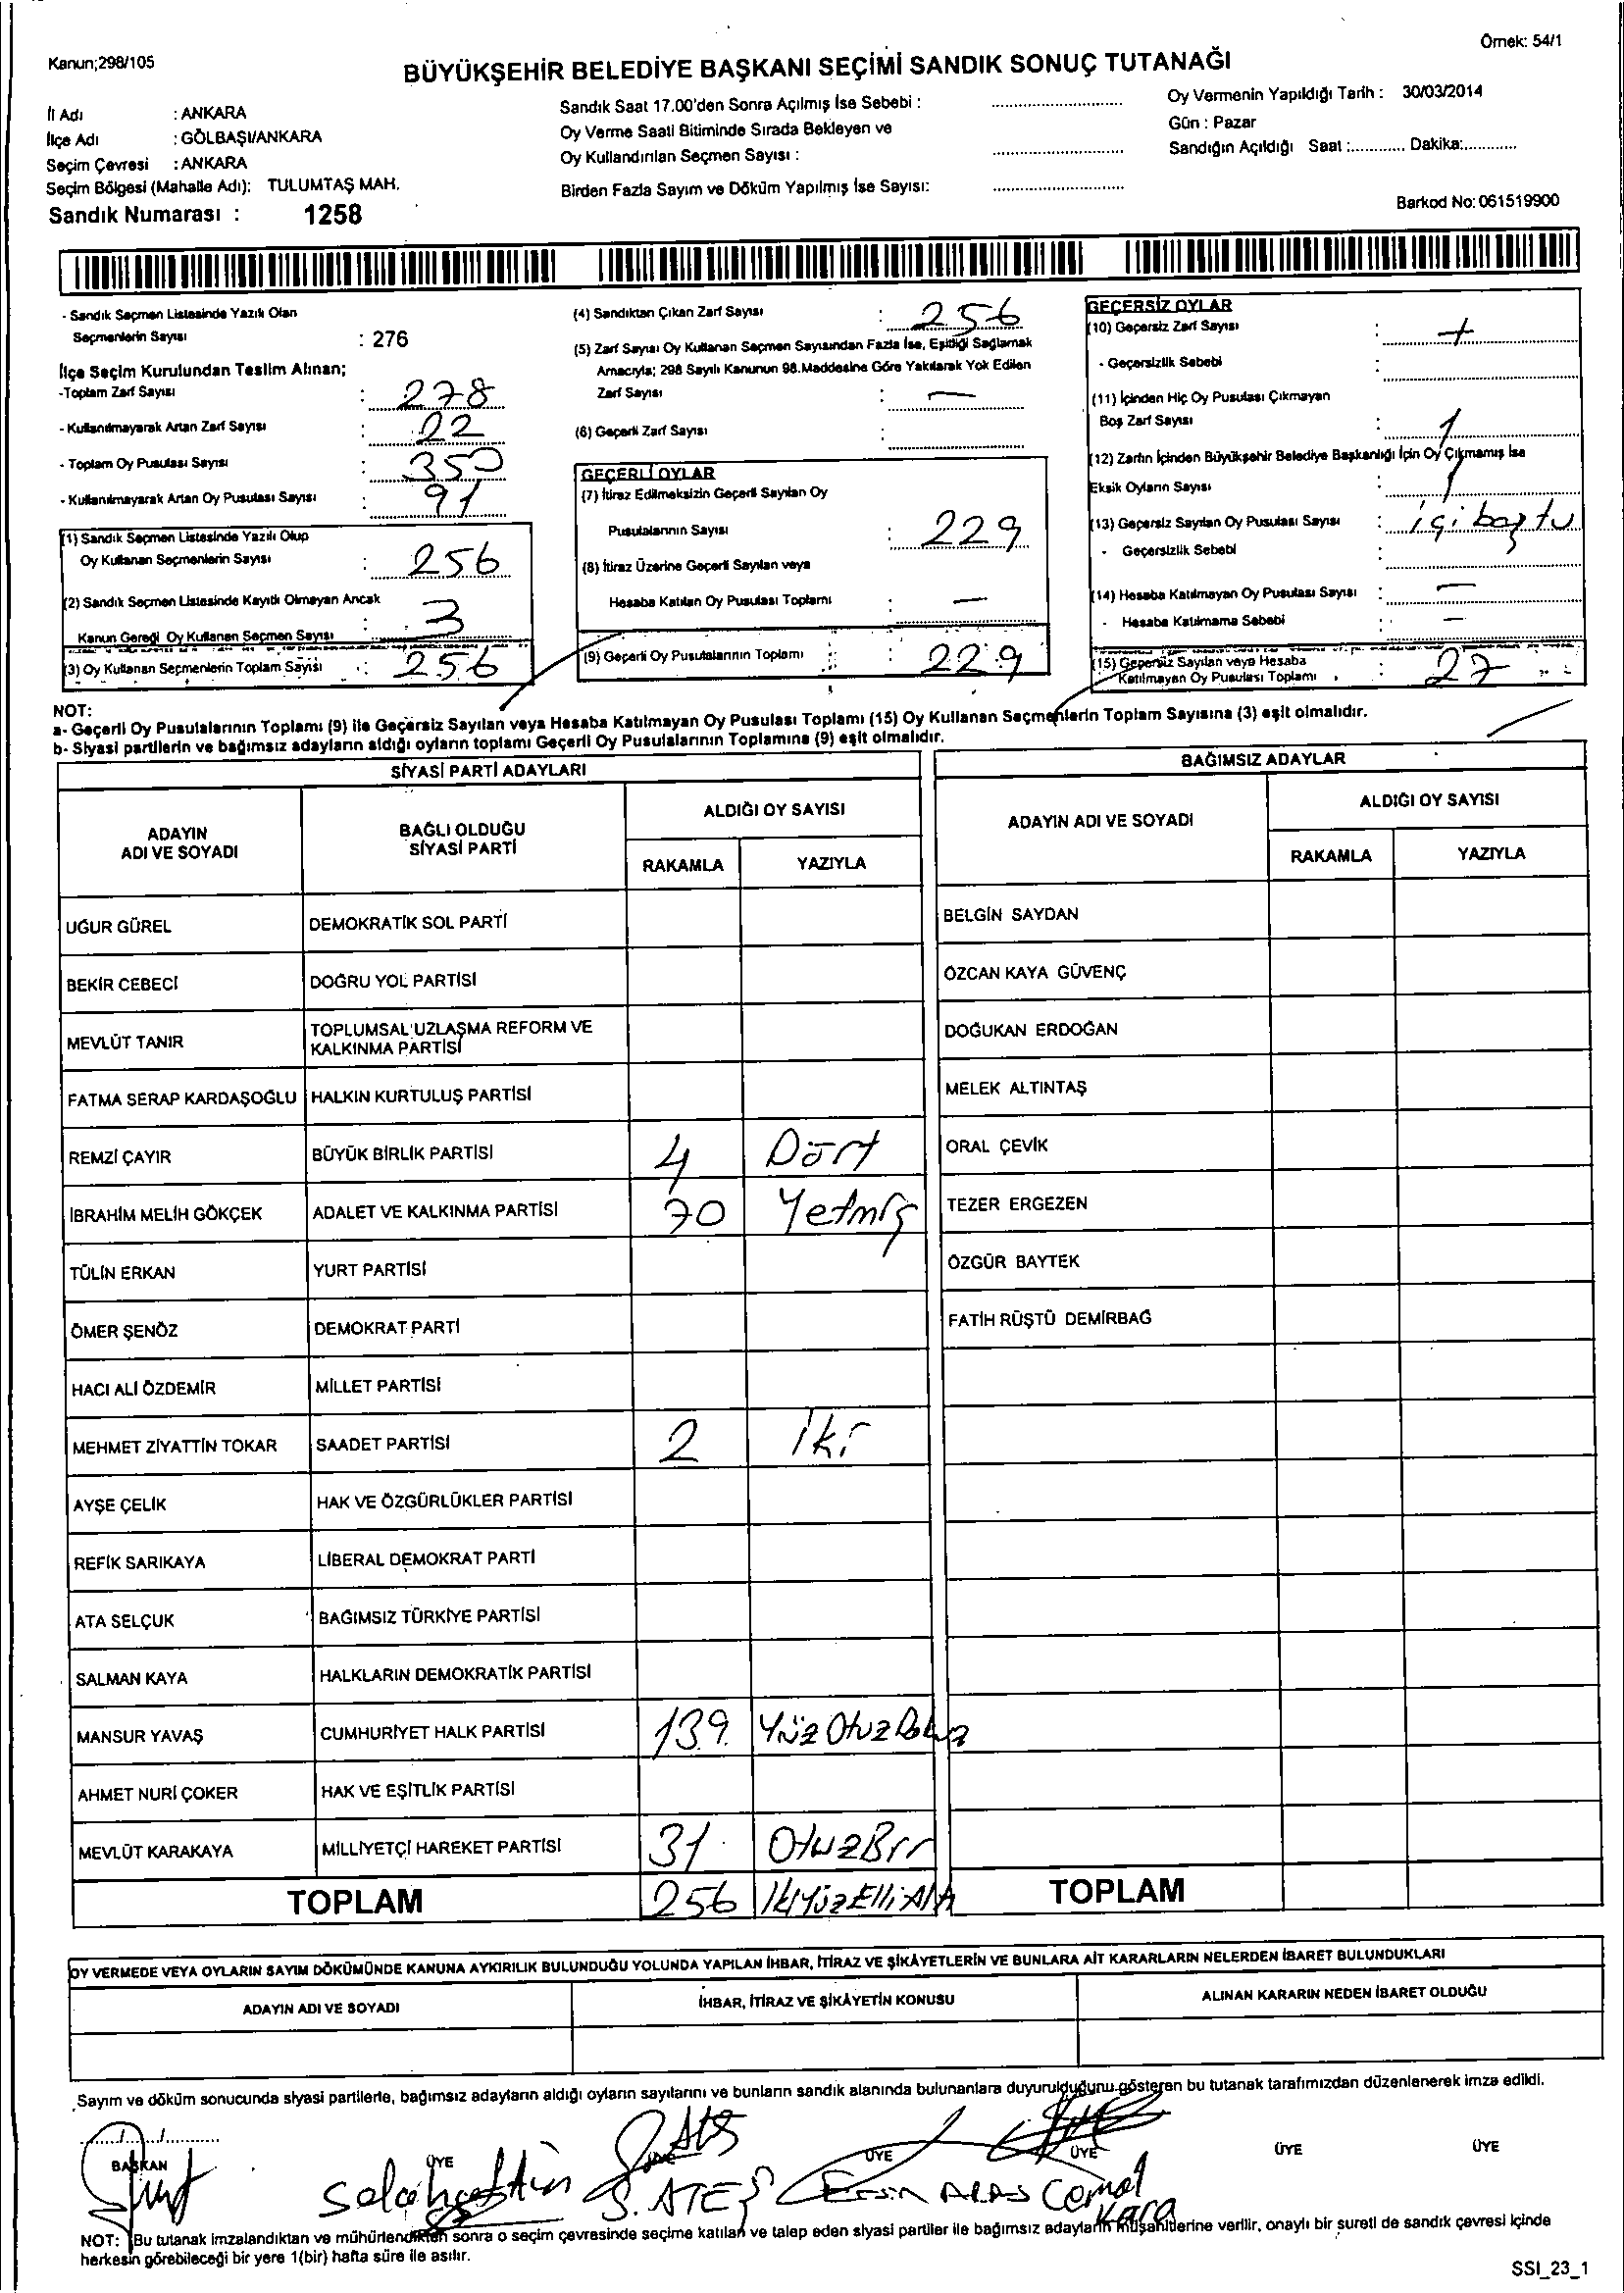 Örnek: 54/1
Kanun;298/105
BÜYÜKŞEHİR BELEDİYE BAŞKANI SEÇİMİ SANDIK SONUÇ TUTANAĞI
İl Adı : ANKARA
İlçe Adı : GÖLBAŞI/ANKARA
Seçim Çevresi : ANKARA
Seçim Bölgesi (Mahalle Adı): TULUMTAŞ MAH.
Sandık Numarası : 1258
Sandık Saat 17.00'den Sonra Açılmış İse Sebebi :
Oy Verme Saati Bitiminde Sırada Bekleyen ve
Oy Kullandırılan Seçmen Sayısı :
Birden Fazla Sayım ve Döküm Yapılmış İse Sayısı:
Oy Vermenin Yapıldığı Tarih : 30/03/2014
Gün : Pazar
Sandığın Açıldığı Saat :............ Dakika:............
Barkod No: 061519900
- Sandık Seçmen Listesinde Yazılı Olan
Seçmenlerin Sayısı : 276
İlçe Seçim Kurulundan Teslim Alınan;
-Toplam Zarf Sayısı : 278
- Kullanılmayarak Artan Zarf Sayısı : 22
- Toplam Oy Pusulası Sayısı : 350
- Kullanılmayarak Artan Oy Pusulası Sayısı : 91
(1) Sandık Seçmen Listesinde Yazılı Olup
Oy Kullanan Seçmenlerin Sayısı : 256
(2) Sandık Seçmen Listesinde Kayıtlı Olmayan Ancak
Kanun Gereği Oy Kullanan Seçmen Sayısı : 3
(3) Oy Kullanan Seçmenlerin Toplam Sayısı : 256
(4) Sandıktan Çıkan Zarf Sayısı : 256
(5) Zarf Sayısı Oy Kullanan Seçmen Sayısından Fazla İse, Eşitliği Sağlamak
Amacıyla; 298 Sayılı Kanunun 98.Maddesine Göre Yakılarak Yok Edilen
Zarf Sayısı : —
(6) Geçerli Zarf Sayısı :
GEÇERLİ OYLAR
(7) İtiraz Edilmeksizin Geçerli Sayılan Oy
Pusulalarının Sayısı : 229
(8) İtiraz Üzerine Geçerli Sayılan veya
Hesaba Katılan Oy Pusulası Toplamı : —
(9) Geçerli Oy Pusulalarının Toplamı : 229
GEÇERSİZ OYLAR
(10) Geçersiz Zarf Sayısı :
- Geçersizlik Sebebi :
(11) İçinden Hiç Oy Pusulası Çıkmayan
Boş Zarf Sayısı : 1
(12) Zarfın İçinden Büyükşehir Belediye Başkanlığı İçin Oy Çıkmamış İse
Eksik Oyların Sayısı : 1
(13) Geçersiz Sayılan Oy Pusulası Sayısı : içi boştu
- Geçersizlik Sebebi :
(14) Hesaba Katılmayan Oy Pusulası Sayısı : —
- Hesaba Katılmama Sebebi : —
(15) Geçersiz Sayılan veya Hesaba
Katılmayan Oy Pusulası Toplamı : 27
NOT:
a- Geçerli Oy Pusulalarının Toplamı (9) ile Geçersiz Sayılan veya Hesaba Katılmayan Oy Pusulası Toplamı (15) Oy Kullanan Seçmenlerin Toplam Sayısına (3) eşit olmalıdır.
b- Siyasi partilerin ve bağımsız adayların aldığı oyların toplamı Geçerli Oy Pusulalarının Toplamına (9) eşit olmalıdır.
SİYASİ PARTİ ADAYLARI
ADAYIN ADI VE SOYADI
BAĞLI OLDUĞU SİYASİ PARTİ
ALDIĞI OY SAYISI
RAKAMLA YAZIYLA
UĞUR GÜREL DEMOKRATİK SOL PARTİ
BEKİR CEBECİ DOĞRU YOL PARTİSİ
MEVLÜT TANIR TOPLUMSAL UZLAŞMA REFORM VE KALKINMA PARTİSİ
FATMA SERAP KARDAŞOĞLU HALKIN KURTULUŞ PARTİSİ
REMZİ ÇAYIR BÜYÜK BİRLİK PARTİSİ 4 Dört
İBRAHİM MELİH GÖKÇEK ADALET VE KALKINMA PARTİSİ 70 Yetmiş
TÜLİN ERKAN YURT PARTİSİ
ÖMER ŞENÖZ DEMOKRAT PARTİ
HACI ALİ ÖZDEMİR MİLLET PARTİSİ
MEHMET ZİYATTİN TOKAR SAADET PARTİSİ 2 İki
AYŞE ÇELİK HAK VE ÖZGÜRLÜKLER PARTİSİ
REFİK SARIKAYA LİBERAL DEMOKRAT PARTİ
ATA SELÇUK BAĞIMSIZ TÜRKİYE PARTİSİ
SALMAN KAYA HALKLARIN DEMOKRATİK PARTİSİ
MANSUR YAVAŞ CUMHURİYET HALK PARTİSİ 139 Yüz Otuz Dokuz
AHMET NURİ ÇOKER HAK VE EŞİTLİK PARTİSİ
MEVLÜT KARAKAYA MİLLİYETÇİ HAREKET PARTİSİ 31 Otuz Bir
TOPLAM 256 İkiYüz Elli Altı
BAĞIMSIZ ADAYLAR
ADAYIN ADI VE SOYADI
ALDIĞI OY SAYISI
RAKAMLA YAZIYLA
BELGİN SAYDAN
ÖZCAN KAYA GÜVENÇ
DOĞUKAN ERDOĞAN
MELEK ALTINTAŞ
ORAL ÇEVİK
TEZER ERGEZEN
ÖZGÜR BAYTEK
FATİH RÜŞTÜ DEMİRBAĞ
TOPLAM
OY VERMEDE VEYA OYLARIN SAYIM DÖKÜMÜNDE KANUNA AYKIRILIK BULUNDUĞU YOLUNDA YAPILAN İHBAR, İTİRAZ VE ŞİKÂYETLERİN VE BUNLARA AİT KARARLARIN NELERDEN İBARET BULUNDUKLARI
ADAYIN ADI VE SOYADI İHBAR, İTİRAZ VE ŞİKÂYETİN KONUSU ALINAN KARARIN NEDEN İBARET OLDUĞU
Sayım ve döküm sonucunda siyasi partilerle, bağımsız adayların aldığı oyların sayılarını ve bunların sandık alanında bulunanlara duyurulduğunu gösteren bu tutanak tarafımızdan düzenlenerek imza edildi.
BAŞKAN ÜYE ÜYE ÜYE ÜYE ÜYE ÜYE
Selahattin S. ATEŞ Ersin ARAS Cemal Kara
NOT: Bu tutanak imzalandıktan ve mühürlendikten sonra o seçim çevresinde seçime katılan ve talep eden siyasi partiler ile bağımsız adayların müşahitlerine verilir, onaylı bir sureti de sandık çevresi içinde
herkesin görebileceği bir yere 1(bir) hafta süre ile asılır.
SSI_23_1